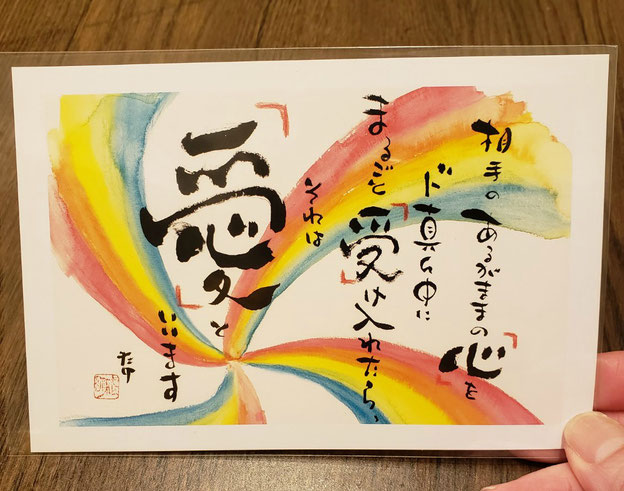 相手のあるがままの「心」を
ド真ん中に
まるごと「受」け入れたら、
それは
「愛」と
いいます
たけ